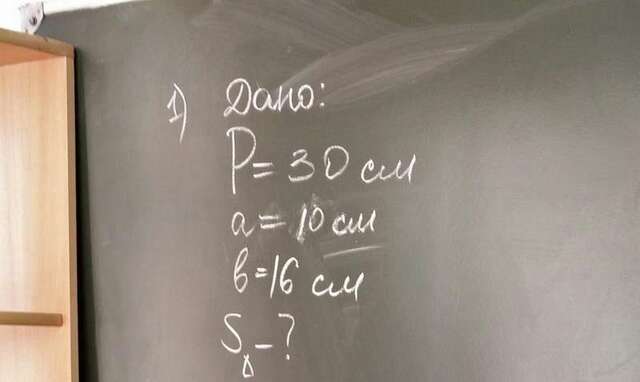 1) Дано:
P = 30 см
a = 10 см
в = 16 см
S - ?